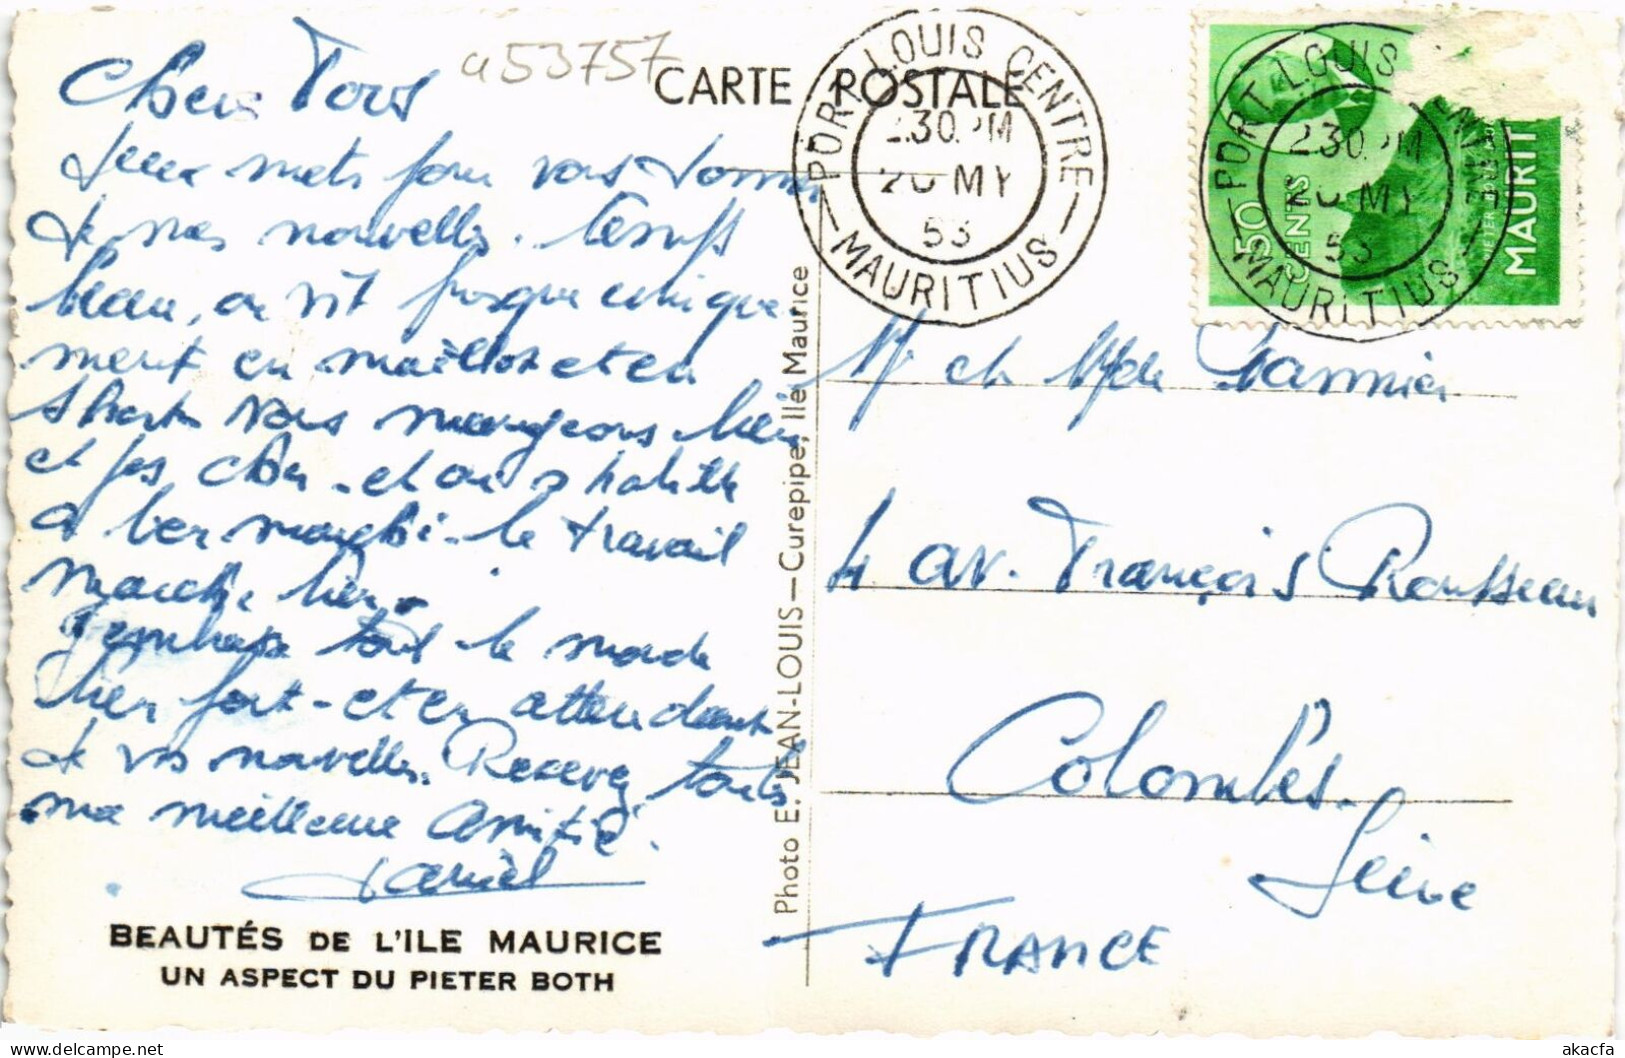 Chers Tous
a53757
CARTE POSTALE
deux mots pour vous donner
de mes nouvelles. Temps
beau, on vit presque unique-
ment en maillot et en
short. Nous mangeons bien
et pas cher. et on s habitue
a
le travail
marche bien.
J'embrasse tout le monde
bien fort. et en attendant
de vos nouvelles. Recevez toutes
ma meilleure amitié.
Daniel
BEAUTÉS DE L'ILE MAURICE
UN ASPECT DU PIETER BOTH
Photo E. JEAN-LOUIS—Curepipe, Ile Maurice
PORT LOUIS CENTRE
2.30.PM
20 MY
53
MAURITIUS
PORT LOUIS CENTRE
2.30.PM
20 MY
53
MAURITIUS
50 CENTS
PIETER BOTH
MAURIT
M. et Mde
4 av. François Rousseau
Colombes.
Seine
FRANCE
akacfa